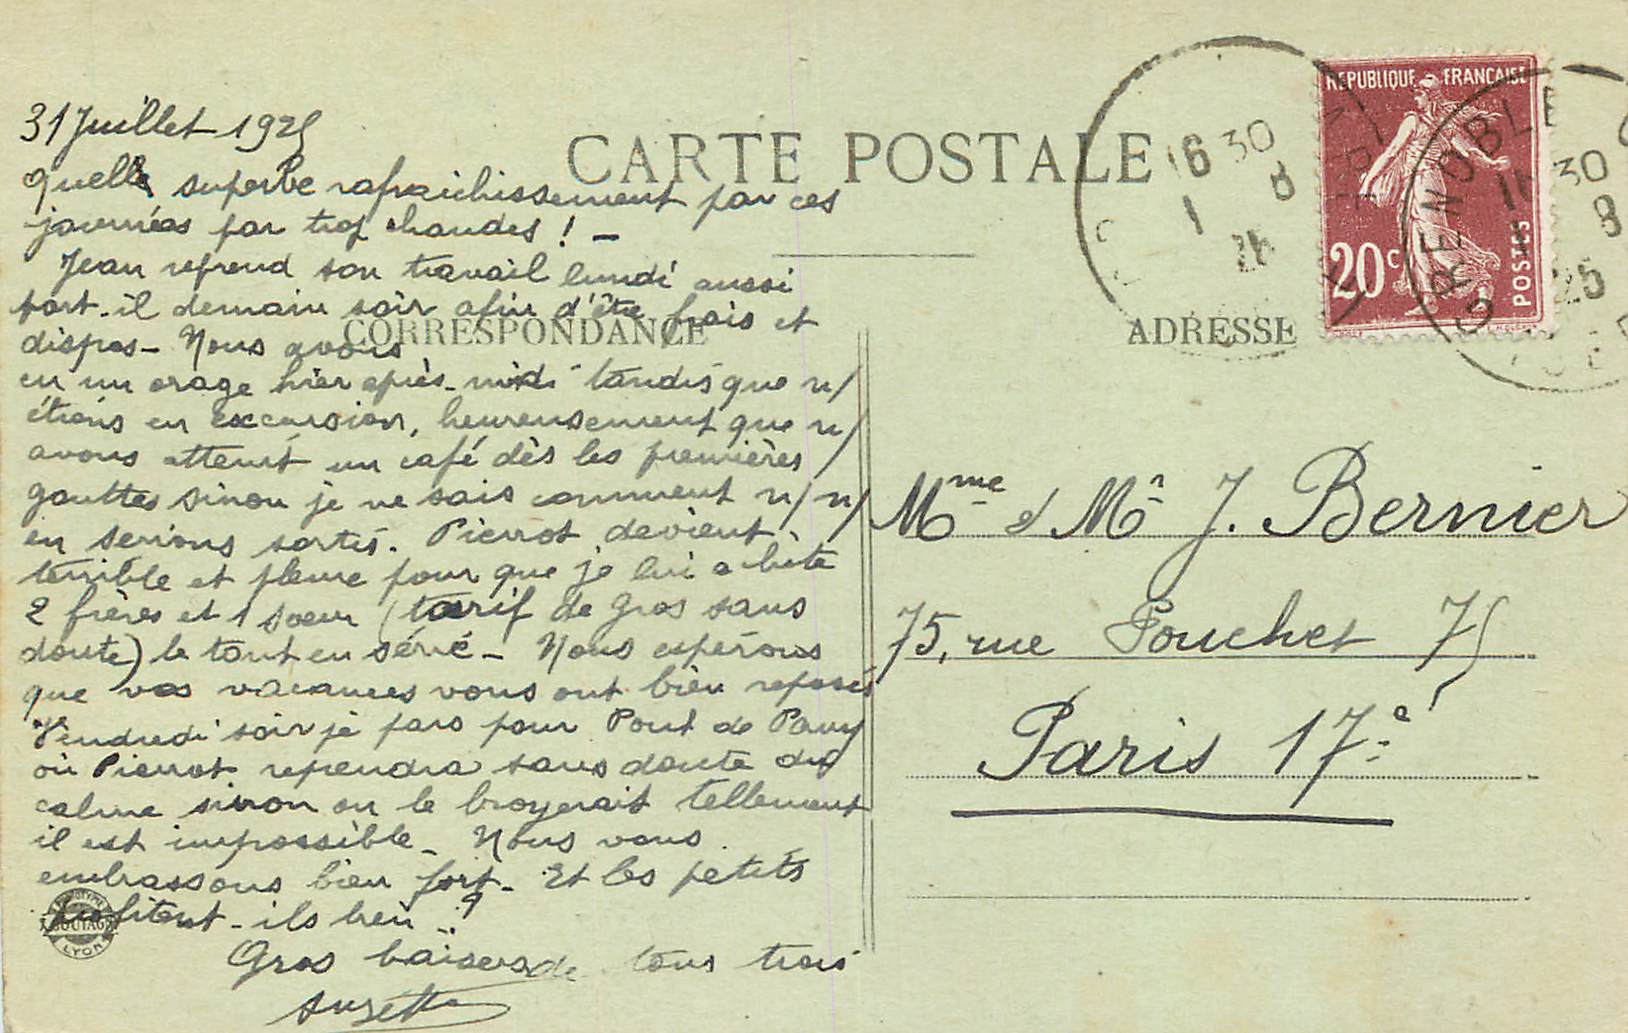 31 Juillet 1925
CARTE POSTALE
Quelle superbe rafraichissement par ces
journées par trop chaudes ! -
Jean reprend son travail lundi aussi
part-il demain soir afin d'être frais et
dispos - Nous avons
CORRESPONDANCE
eu un orage hier après-midi tandis que n/
étions en excursion, heureusement que n/
avons atteint un café dès les premières
gouttes sinon je ne sais comment n/ n/
en serions sortis. Pierrot devient
terrible et pleure pour que je lui achète
2 frères et 1 soeur (tarif de gros sans
doute) le tout en série - Nous espérons
que vos vacances vous ont bien reposés
Vendredi soir je pars pour Pont de Pany
où Pierrot reprendra sans doute du
calme sinon on le broyerait tellement
il est impossible - Nous vous
embrassons bien fort - Et les petits
profitent-ils bien ?
Gros baisers de tous trois
Suzette
LYON
ADRESSE
REPUBLIQUE FRANCAISE
20c
POSTES
16 30
1 8
GRENOBLE
30
8
25
Mme et Mr J. Bernier
75, rue Pouchet 75
Paris 17e